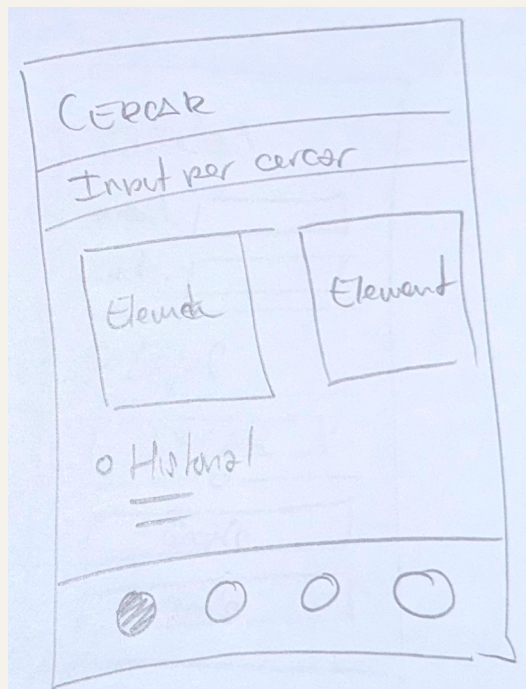 CERCAR
Input per cercar
Element
Element
Historial